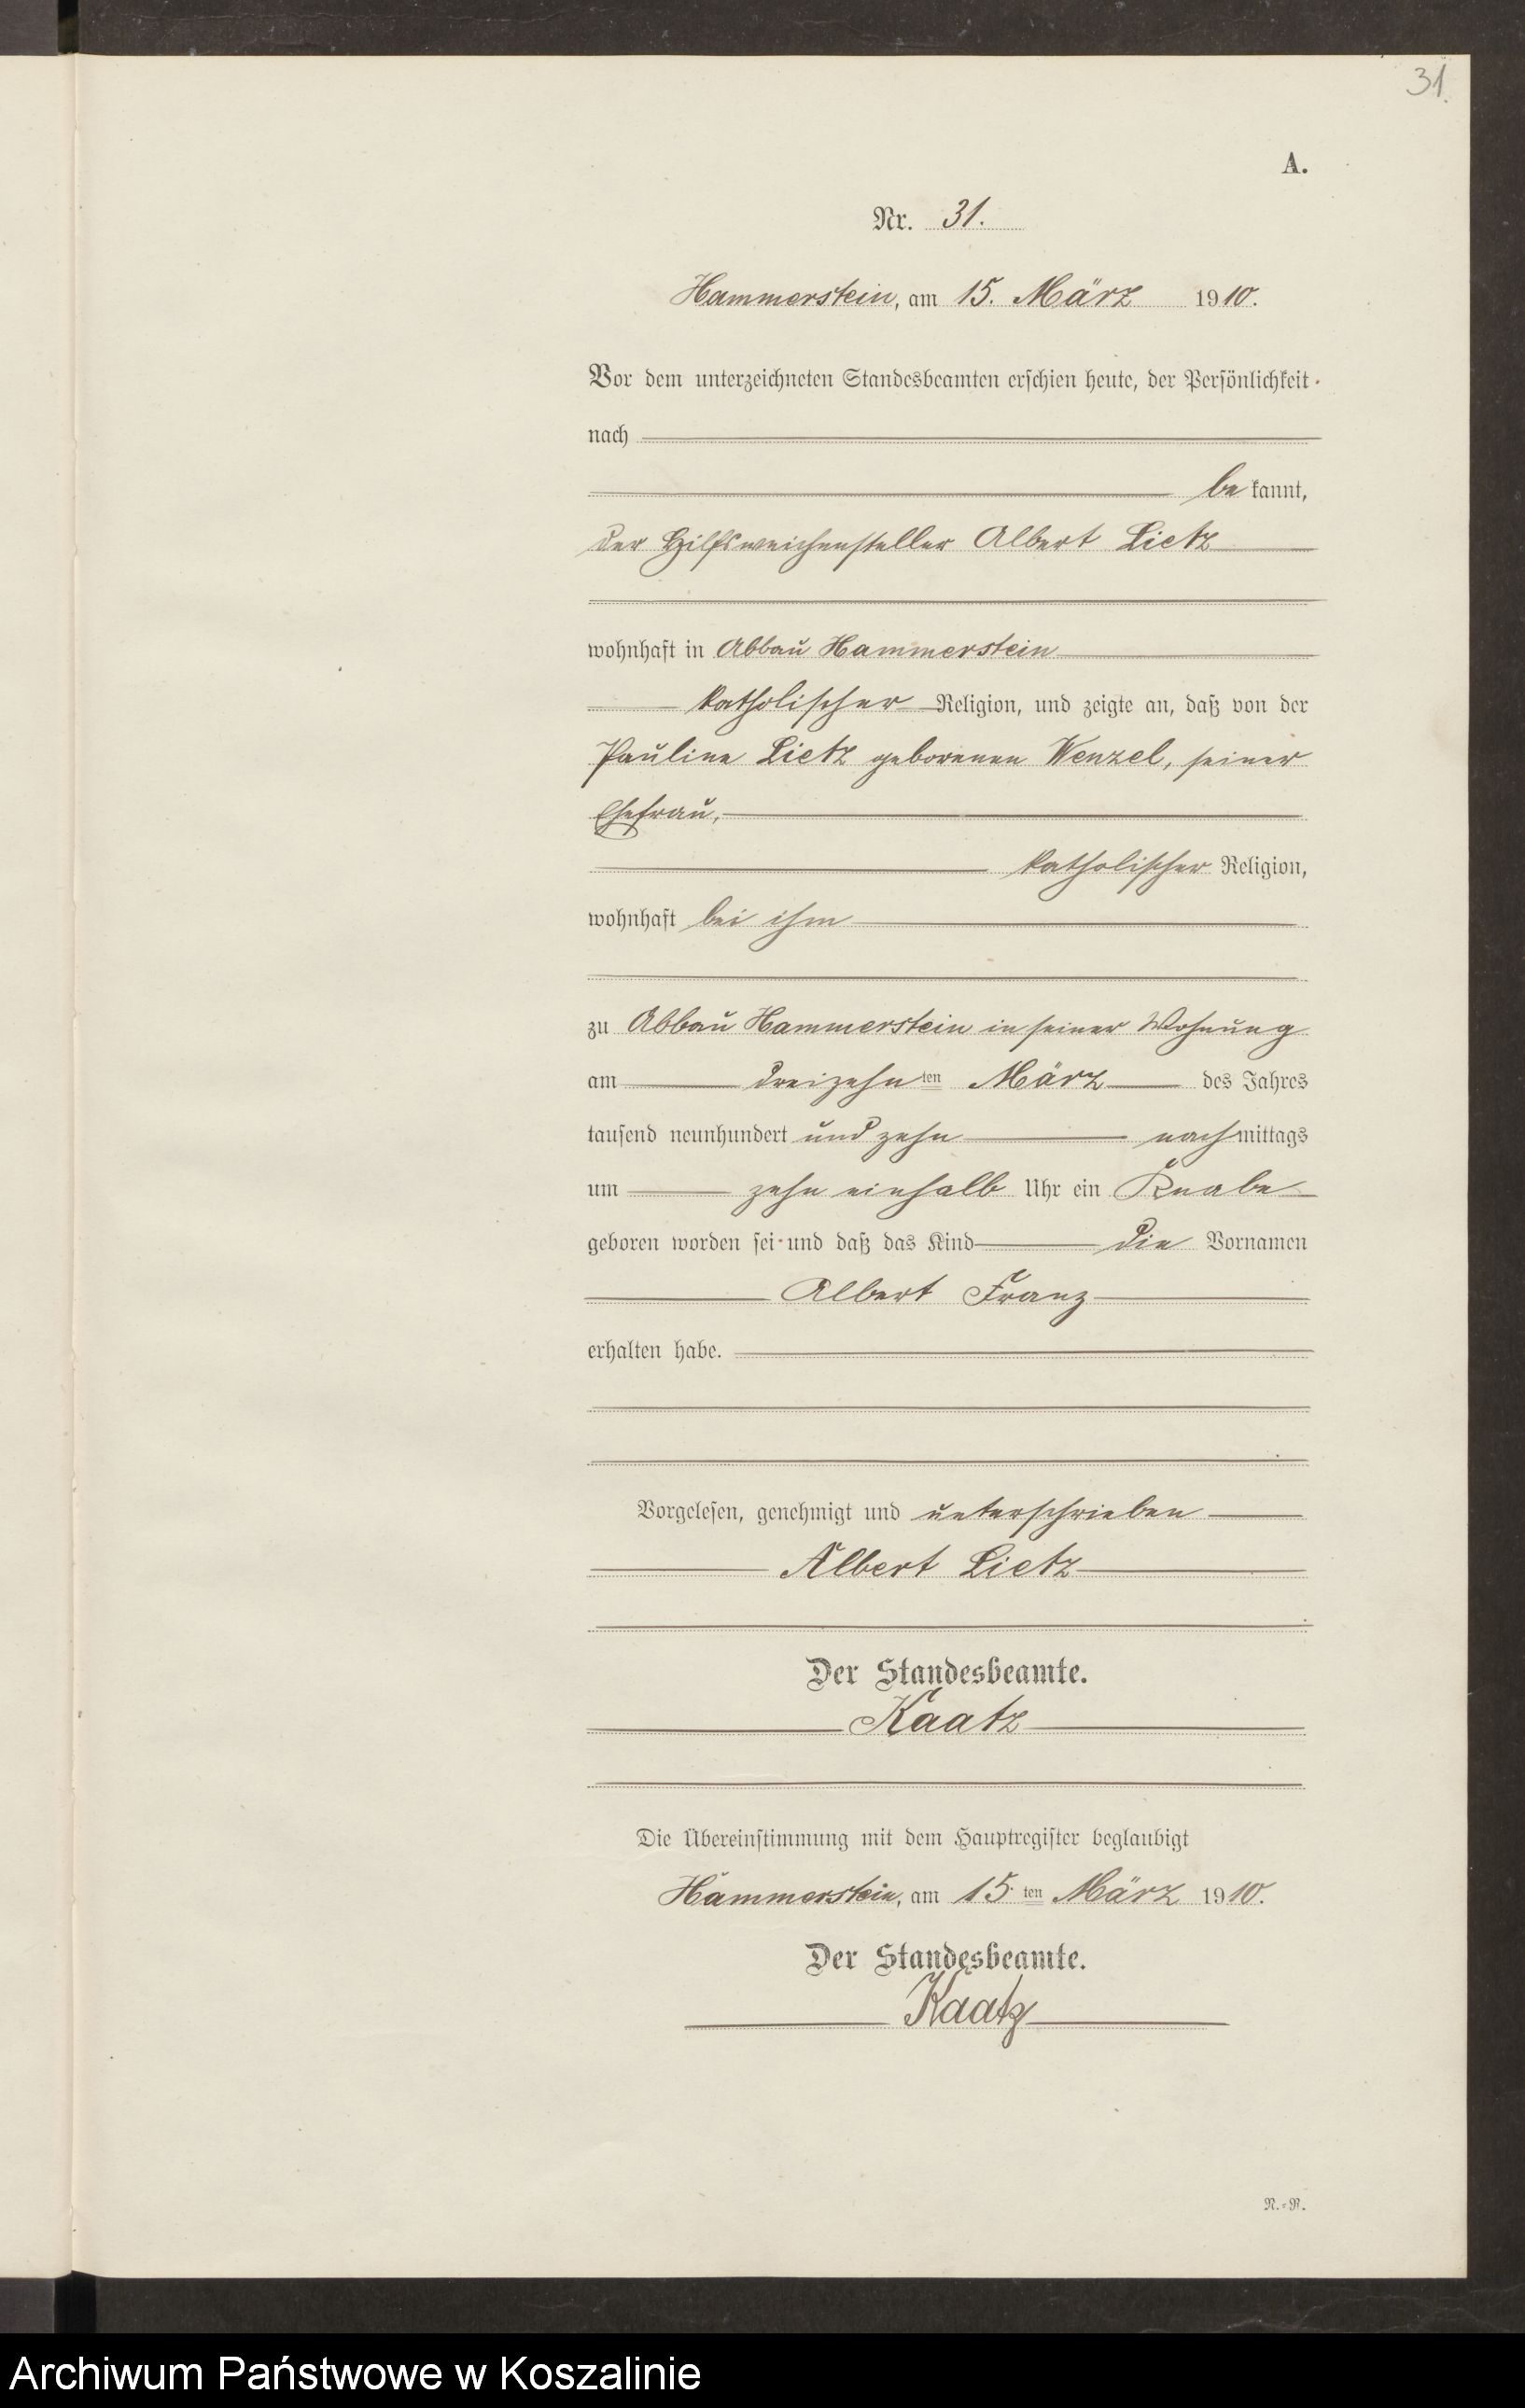 31.
A.
Nr. 31.
Hammerstein, am 15. März 1910.
Vor dem unterzeichneten Standesbeamten erschien heute, der Persönlichkeit
nach
bekannt,
der Hilfsweichensteller Albert Lietz
wohnhaft in Abbau Hammerstein
katholischer Religion, und zeigte an, daß von der
Pauline Lietz geborenen Wenzel, seiner
Ehefrau,
katholischer Religion,
wohnhaft bei ihm
zu Abbau Hammerstein in seiner Wohnung
am dreizehnten März des Jahres
tausend neunhundert und zehn nachmittags
um zehn einhalb Uhr ein Knabe
geboren worden sei und daß das Kind die Vornamen
Albert Franz
erhalten habe.
Vorgelesen, genehmigt und unterschrieben
Albert Lietz
Der Standesbeamte.
Kaatz
Die Übereinstimmung mit dem Hauptregister beglaubigt
Hammerstein, am 15.ten März 1910.
Der Standesbeamte.
Kaatz
N.-N.
Archiwum Państwowe w Koszalinie